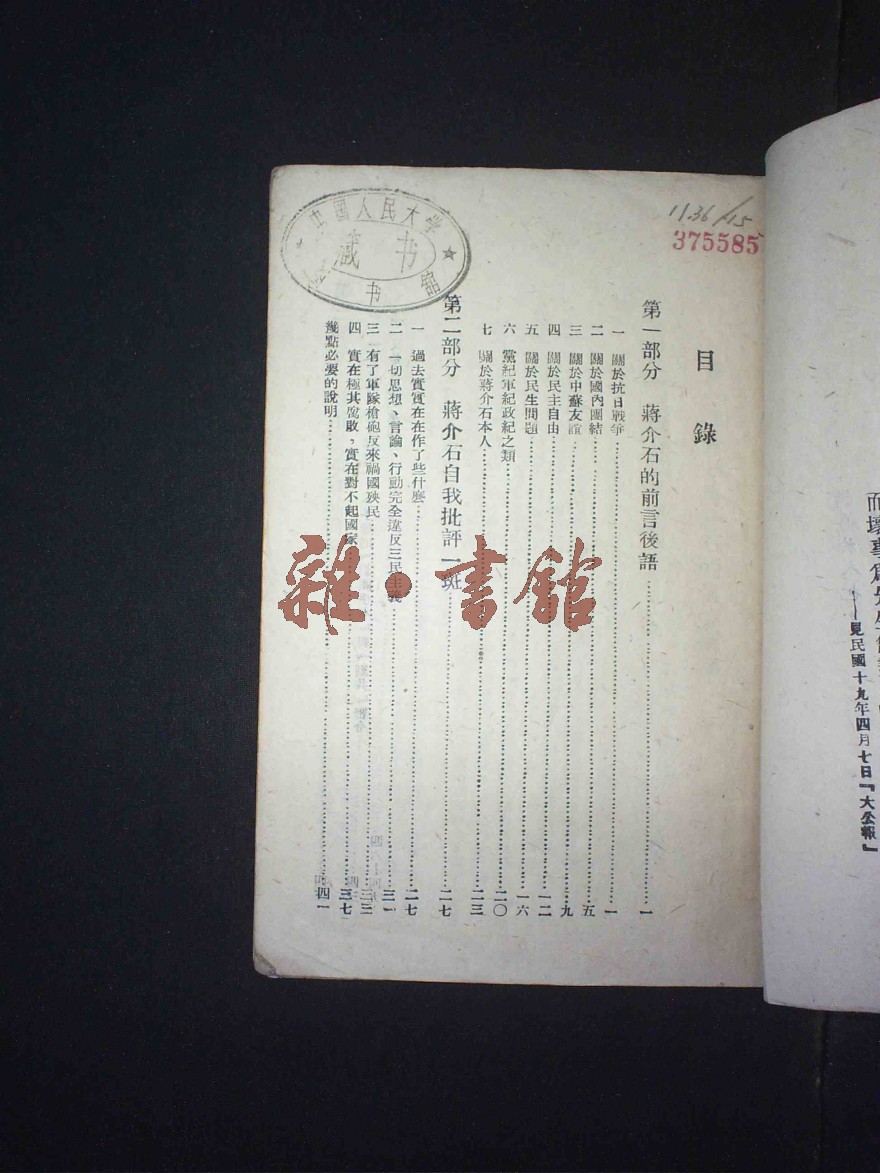 而壞事
——見民國十九年四月七日『大公報』
1136/15
375585
中國人民大学
藏书
图书館
目錄
第一部分　蔣介石的前言後語……一
一　關於抗日戰爭……一
二　關於國內團結……五
三　關於中蘇友誼……九
四　關於民主自由……一二
五　關於民生問題……一六
六　黨紀軍紀政紀之類……二〇
七　關於蔣介石本人……二三
第二部分　蔣介石自我批評一斑……二七
一　過去實實在在作了些什麼……二七
二　一切思想、言論、行動完全違反三民主義……三一
三　有了軍隊槍砲反來禍國殃民……三三
四　實在極其腐敗，實在對不起國家……三七
幾點必要的說明……四一
雜·書館